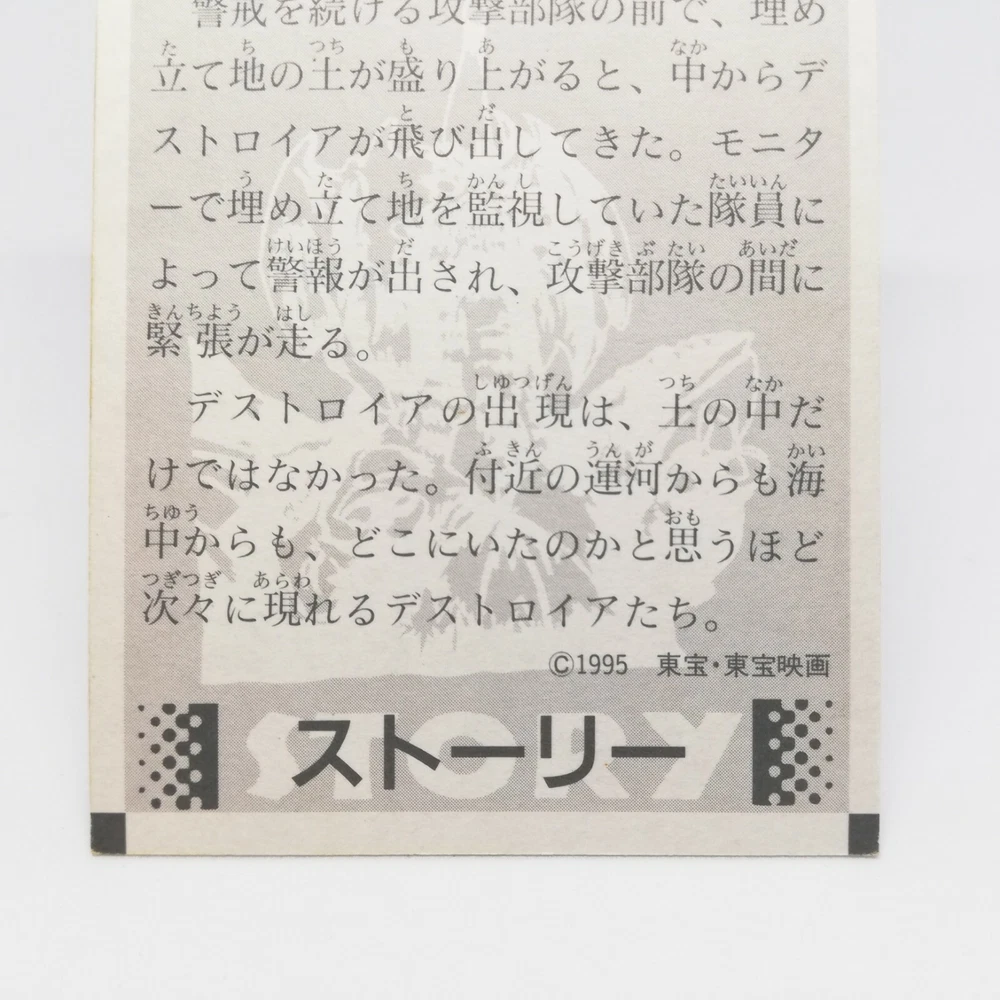 警戒を続ける攻撃部隊の前で、埋め
立て地の土が盛り上がると、中からデ
ストロイアが飛び出してきた。モニタ
ーで埋め立て地を監視していた隊員に
よって警報が出され、攻撃部隊の間に
緊張が走る。
デストロイアの出現は、土の中だ
けではなかった。付近の運河からも海
中からも、どこにいたのかと思うほど
次々に現れるデストロイアたち。
©1995 東宝・東宝映画
STORY
ストーリー